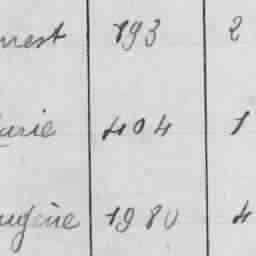 nest 193 2
arie 404 1
ugène 1980 4